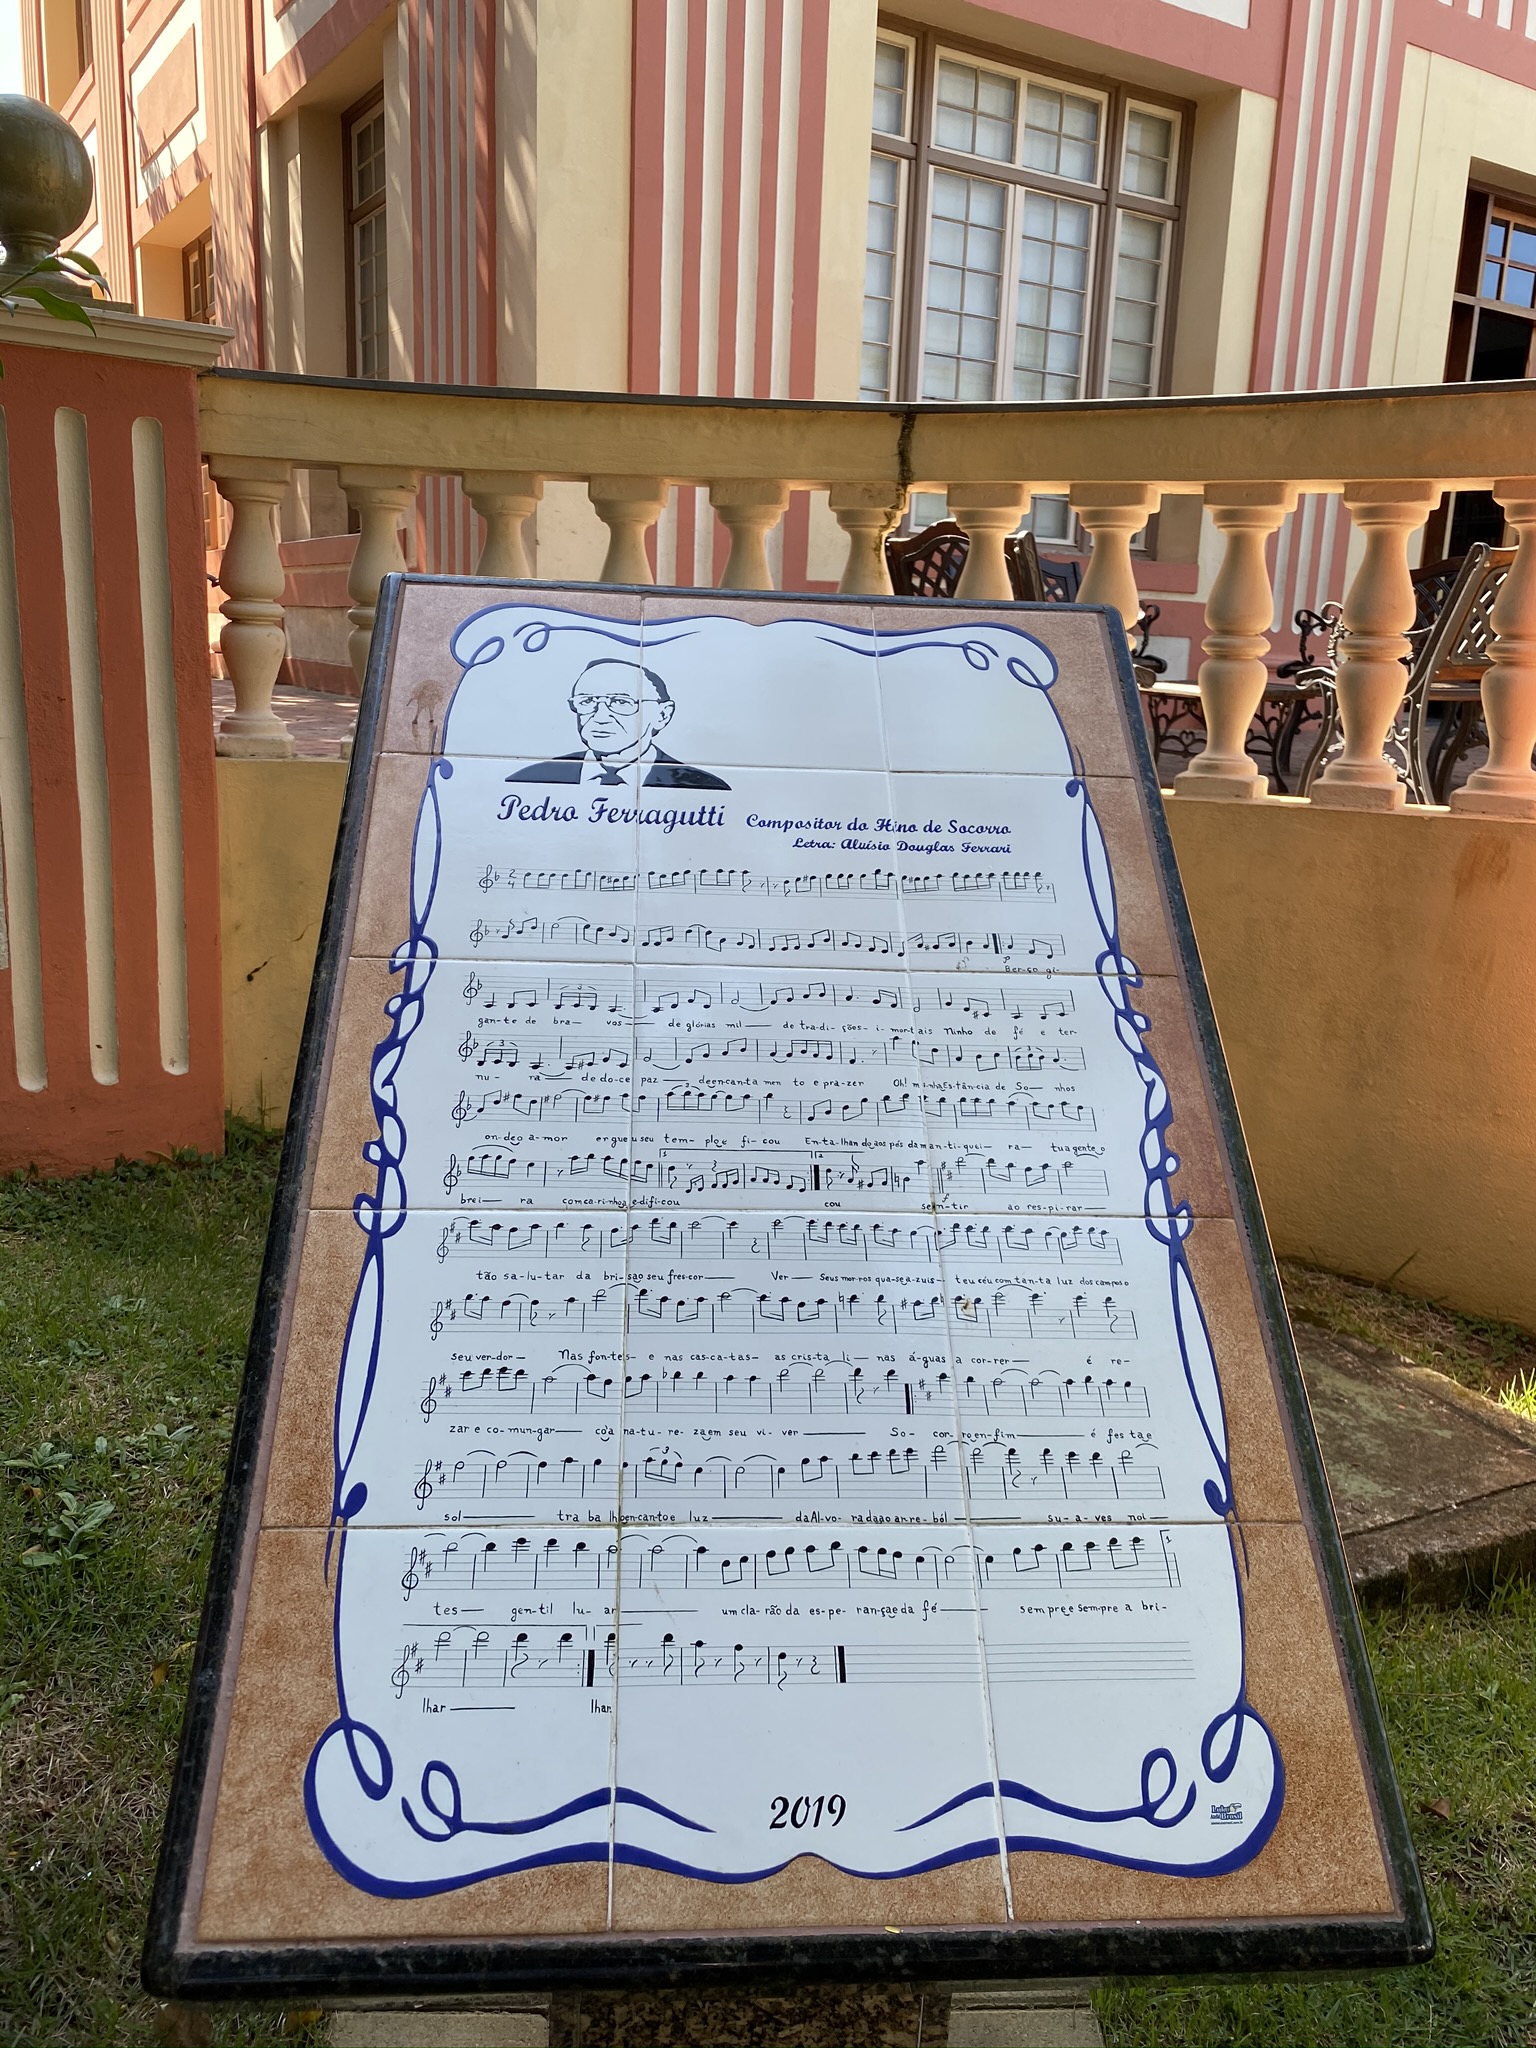 Pedro Ferragutti Compositor do Hino de Socorro
Letra: Aluísio Douglas Ferrari
Ber-ço gi-
gan-te de bra- vos- de glórias mil- de tra-di-ções- i-mor-tais Ninho de fé e ter-
nu- ra- de do-ce paz- deen-can-ta men to e pra-zer Oh! minhaEs-tân-cia de So- nhos
on-deo a-mor ergueu seu tem- ploe fi-cou En-ta-lhan doaos pés daman-ti-quei- ra- tua gente o
1 2
brei- ra comca-ri-nhoa e-di-fi-cou cou sen-tir ao res-pi-rar-
tão sa-lu-tar da bri-sao seu fres-cor- Ver- Seus mor-ros qua-sea-zuis- teu céu com tan-ta luz dos campos o
seu ver-dor- Nas fon-tes- e nas cas-ca-tas- as cris-ta li- nas á-guas a cor-rer- é re-
zar e co-mun-gar- co'a na-tu-re-zaem seu vi-ver- So- cor-roen-fim- é fes tae
sol- tra ba lhoen-can-toe luz- daAl-vo- radaao ar-re-ból- su-a-ves noi-
tes- gen-til lu-ar- um cla-rão da es-pe-ran-çae da fé- sempree sempre a bri-
lhar- lhar.
2019